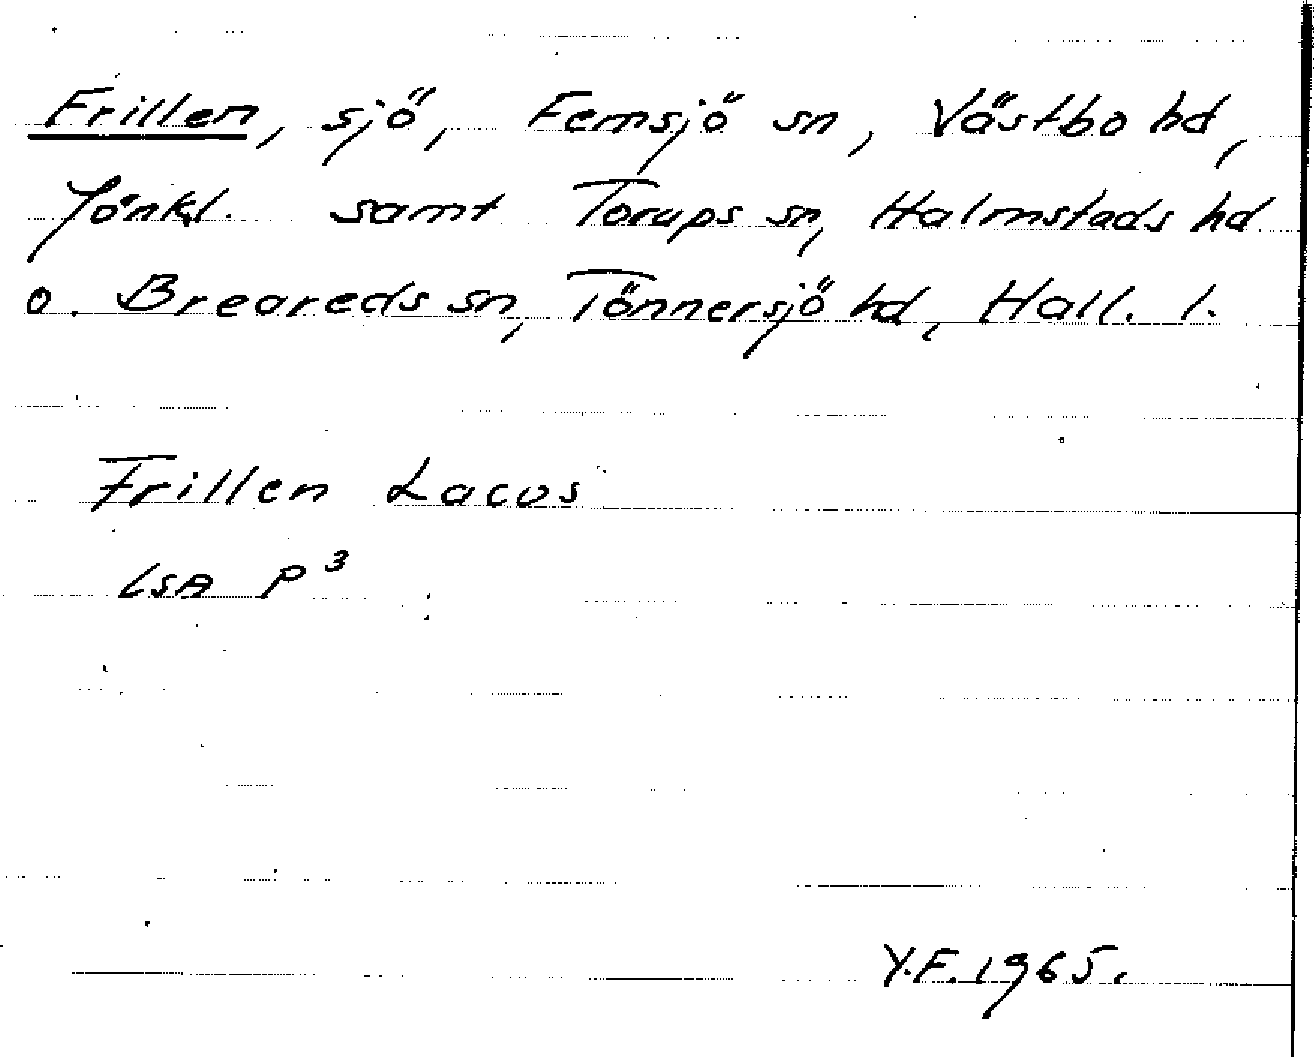 Frillen, sjö, Femsjö sn, Västbo hd,
Jönk.l. samt Torups sn, Halmstads hd
o. Breareds sn, Tönnersjö hd, Hall. l.
Frillen Lacus
LSA P³
Y.F. 1965.